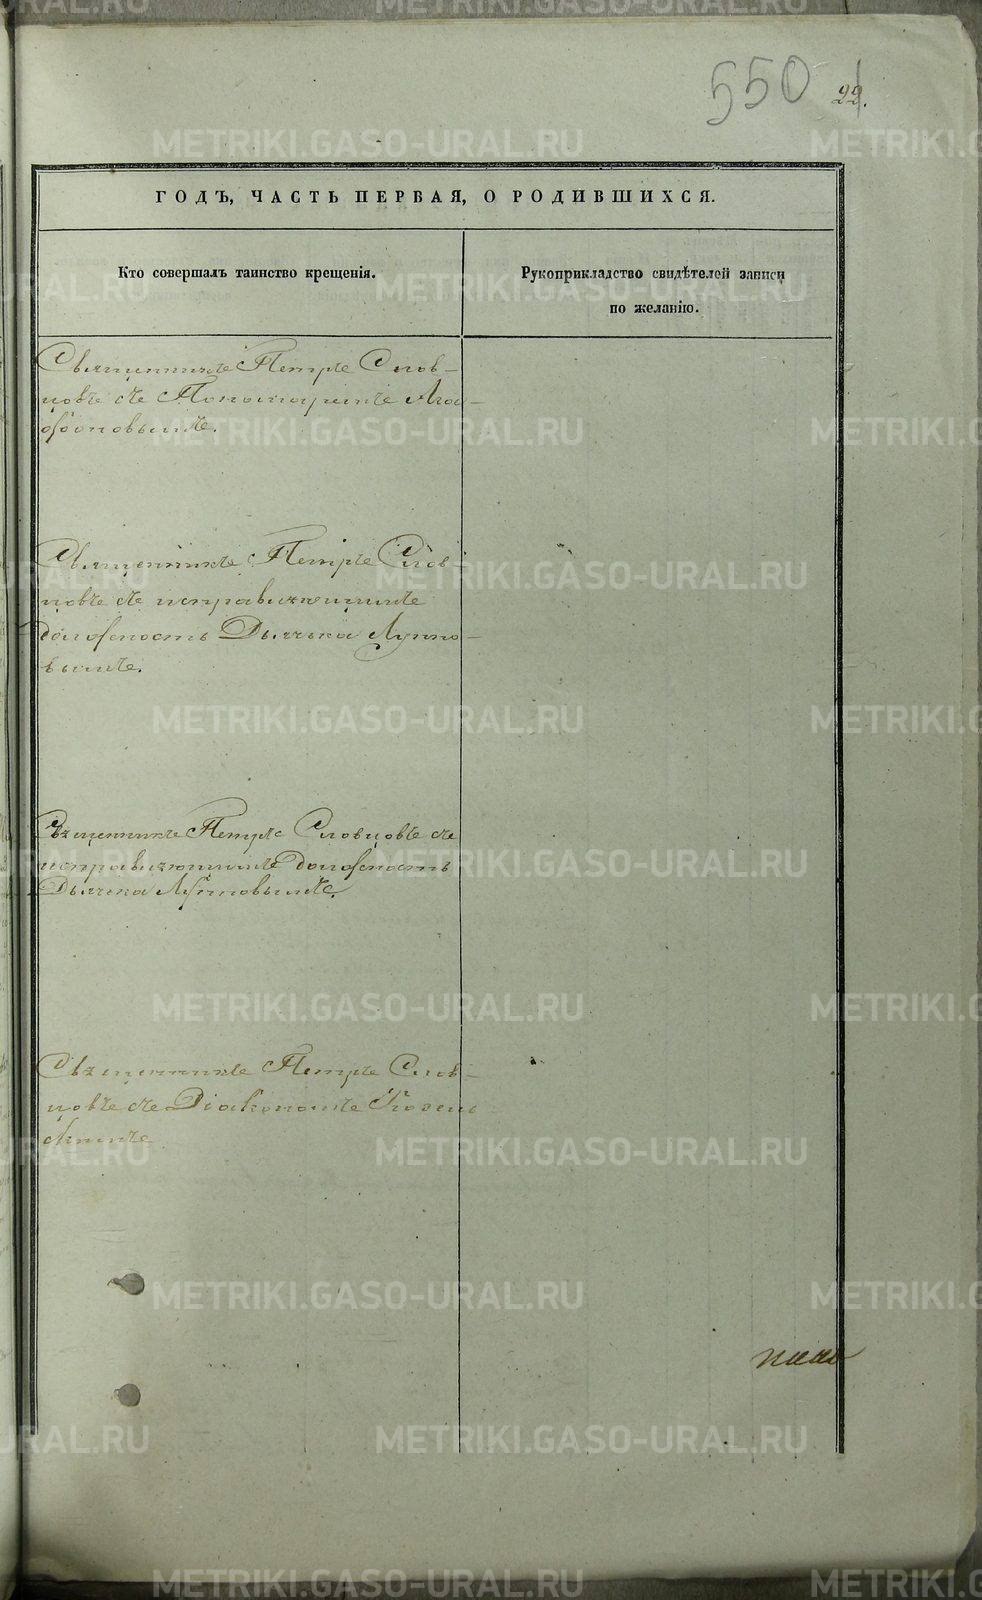 550 22.
ГОДЪ, ЧАСТЬ ПЕРВАЯ, О РОДИВШИХСЯ.
Кто совершалъ таинство крещенія.
Рукоприкладство свидѣтелей записи
по желанію.
Священникъ Петръ Слов-
цовъ съ Пономаремъ Ага-
фоновымъ.
Священникъ Петръ Слов-
цовъ съ исправляющимъ
должность Дьячка Луппо-
вымъ.
Священникъ Петръ Словцовъ съ
исправляющимъ должность
Дьячка Лупповымъ.
Священникъ Петръ Слов-
цовъ съ Діакономъ
METRIKI.GASO-URAL.RU